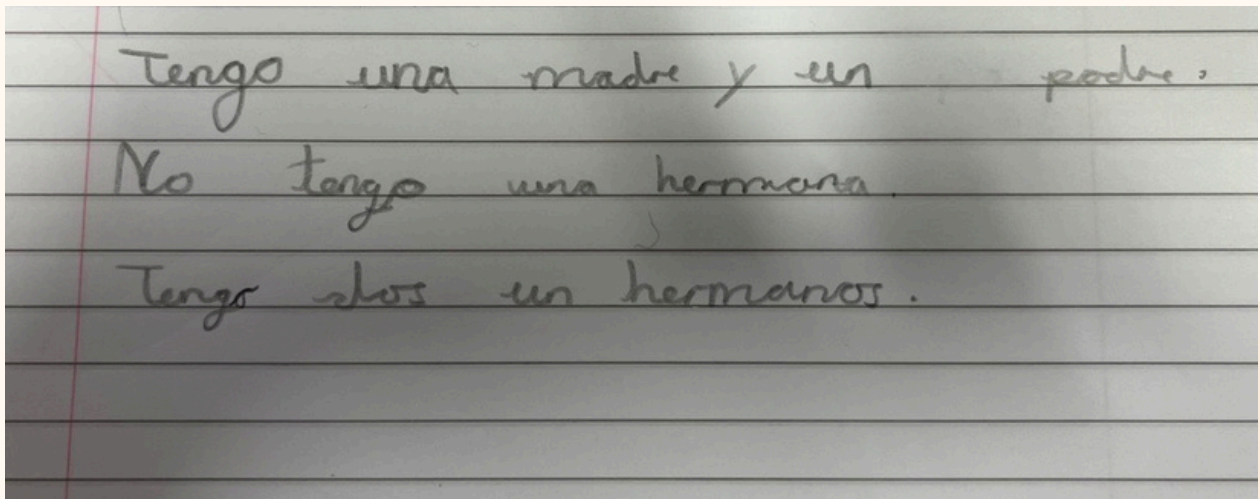 Tengo una madre y un padre.
No tengo una hermana.
Tengo dos un hermanos.